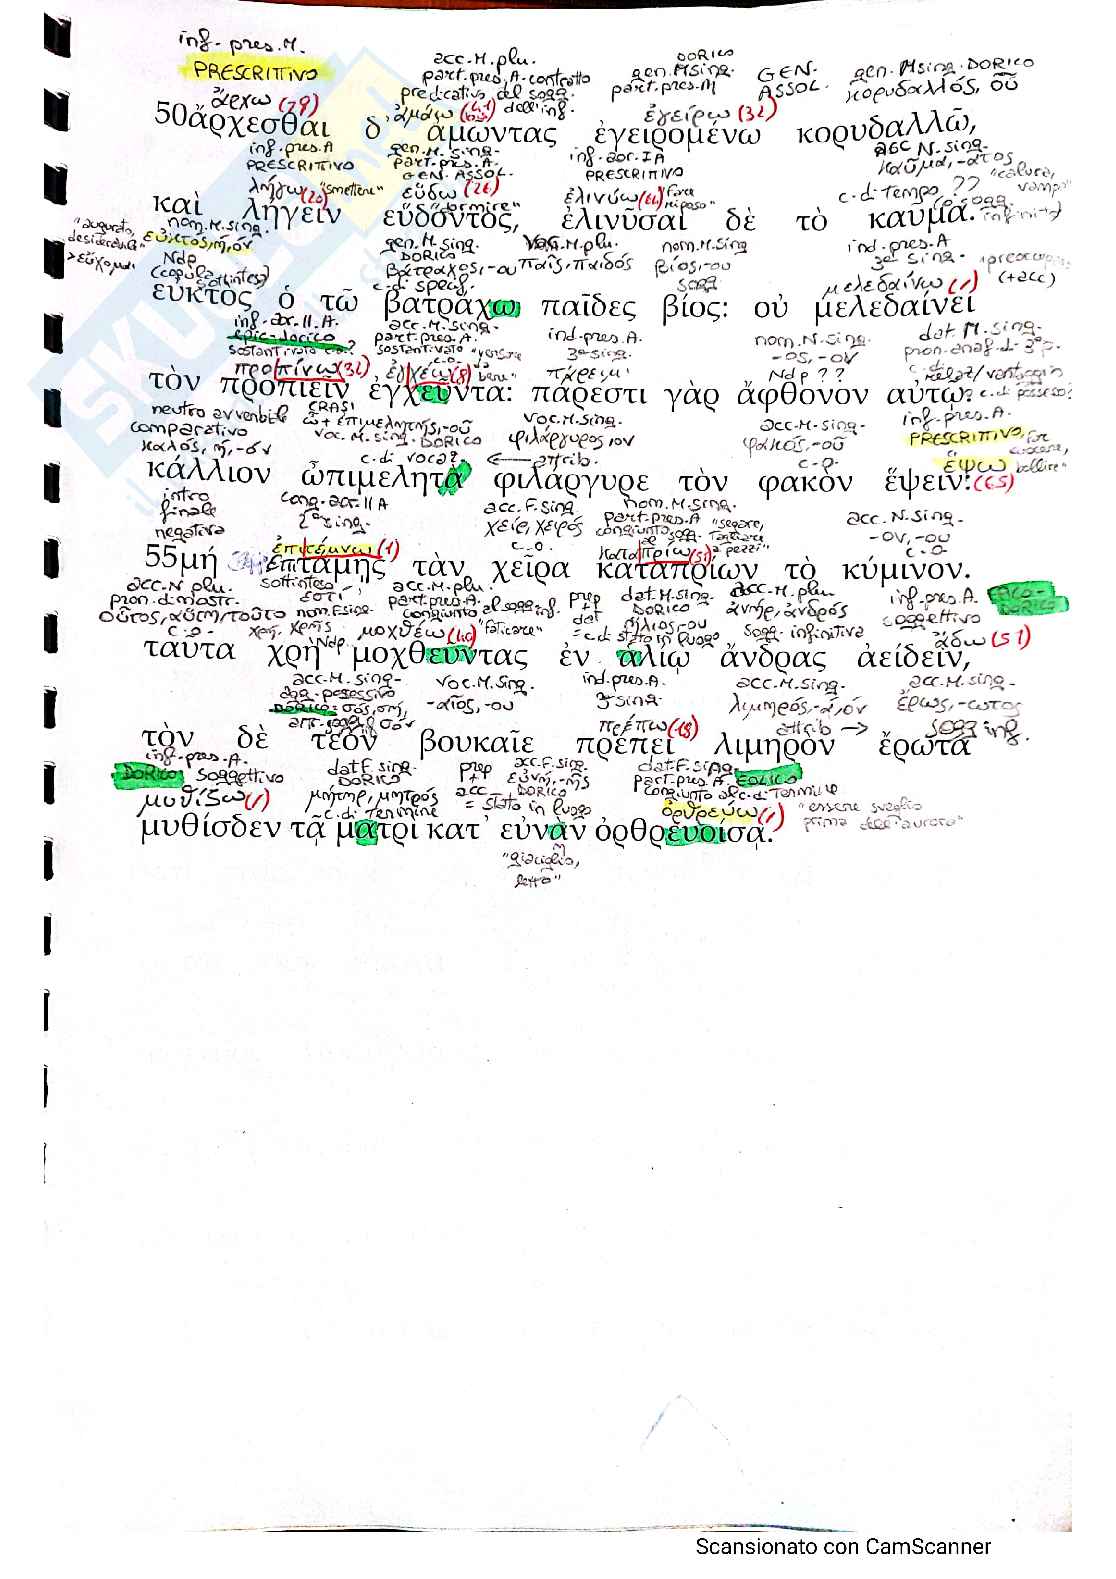 inf. pres. M.
PRESCRITTIVO
ἄρχω (79)
acc. M. plu.
part. pres. A. contratto
predicativo del sogg.
dell'inf.
ἀμάω
DORICO
gen. M sing.
part. pres. M
ἐγείρω (32)
GEN.
ASSOL.
gen. M sing. DORICO
κορυδαλλός, οῦ
50ἄρχεσθαι δ᾽ ἀμῶντας ἐγειρομένω κορυδαλλῶ,
inf. pres. A
PRESCRITTIVO
λήγω (20) "smettere"
gen. M. sing.
part. pres. A.
GEN. ASSOL.
εὕδω (26)
"dormire"
inf. aor. I A
PRESCRITTIVO
ἐλινύω
acc N. sing.
καῦμα, -ατος
"calura,
vampa"
c. di tempo ??
καὶ λήγειν εὕδοντος, ἐλινῦσαι δὲ τὸ καῦμα.
"augurato,
desiderabile"
>εὔχομαι
nom. M. sing.
εὐκτός, ή, όν
Ndp
(copula sottintesa)
gen. M. sing.
DORICO
βάτραχος, -ου
c. di specif.
voc. M. plu.
παῖς, παιδός
nom. M. sing
βίος, -ου
sogg
ind. pres. A
3ª sing.
μελεδαίνω (1)
(+acc)
εὐκτὸς ὁ τῶ βατράχω παῖδες βίος: οὐ μελεδαίνει
inf. aor. II. A.
epic-dorico
προπίνω (32)
acc. M. sing.
part. pres. A.
sostantivato "versare
c.o.
ἐγχέω (8)
ind. pres. A.
3ª sing.
πάρειμι
nom. N. sing.
-ος, -ον
Ndp ??
dat M. sing
pron. anaf. di 3ª p.
c. di possesso?
τὸν προπιεῖν ἐγχεῦντα: πάρεστι γὰρ ἄφθονον αὐτῷ.
neutro avverbiale
comparativo
καλός, ή, -όν
CRASI
ὦ + ἐπιμελητής, -οῦ
voc. M. sing. DORICO
c. di vocaz.
voc. M. sing.
φιλάργυρος, ον
← attrib.
acc. M. sing.
φακός, -οῦ
c.o.
inf. pres. A.
PRESCRITTIVO
ἕψω
bollire"
(65)
κάλλιον ὦπιμελητὰ φιλάργυρε τὸν φακὸν ἕψειν:
intro
finale
negativa
cong. aor. II A
2ª sing.
ἐπιτέμνω (1)
acc. F. sing
χείρ, χειρός
c.o.
nom. M. sing.
part. pres. A
congiunto
al sogg.
καταπρίω (51)
"segare,
tagliare
a pezzi"
acc. N. sing.
-ον, -ου
c.o
55μή ἐπιτάμῃς τὰν χεῖρα καταπρίων τὸ κύμινον.
acc N. plu.
pron. di mostr.
οὗτος, αὕτη, τοῦτο
c.o
sottinteso
ἐστί
nom. F. sing.
χρή, χρῆς
Ndp
acc. M. plu.
part. pres. A.
congiunto al sogg. inf.
μοχθέω (40) "faticare"
prep
+
dat
dat M. sing.
DORICO
ἥλιος, -ου
= c. di stato in luogo
acc. M. plu
ἀνήρ, ἀνδρός
sogg. infinitiva
inf. pres. A.
soggettivo
EPICO-
DORICO
ᾄδω (51)
ταῦτα χρὴ μοχθεῦντας ἐν ἁλίῳ ἄνδρας ἀείδειν,
acc. M. sing.
agg. possessivo
DORICO: σός, σή,
σόν
voc. M. sing.
-αῖος, -ου
ind. pres. A.
3ª sing
πρέπω (18)
acc. M. sing.
λιμηρός, -ά, όν
attrib →
acc. M. sing.
ἔρως, -ωτος
sogg inf.
τὸν δὲ τεὸν βουκαῖε πρέπει λιμηρὸν ἔρωτα
inf. pres. A.
DORICO soggettivo
μυθίζω (1)
dat F. sing.
DORICO
μήτηρ, μητρός
c. di termine
prep
+
acc
acc. F. sing.
εὐνή, -ῆς
DORICO
= stato in luogo
dat. F. sing.
part. pres. A. EOLICO
congiunto al c. di termine
ὀρθρεύω (1)
"essere sveglio
prima dell'aurora"
μυθίσδεν τᾷ ματρὶ κατ᾽ εὐνὰν ὀρθρευοίσᾳ.
"giaciglio,
letto"
Scansionato con CamScanner